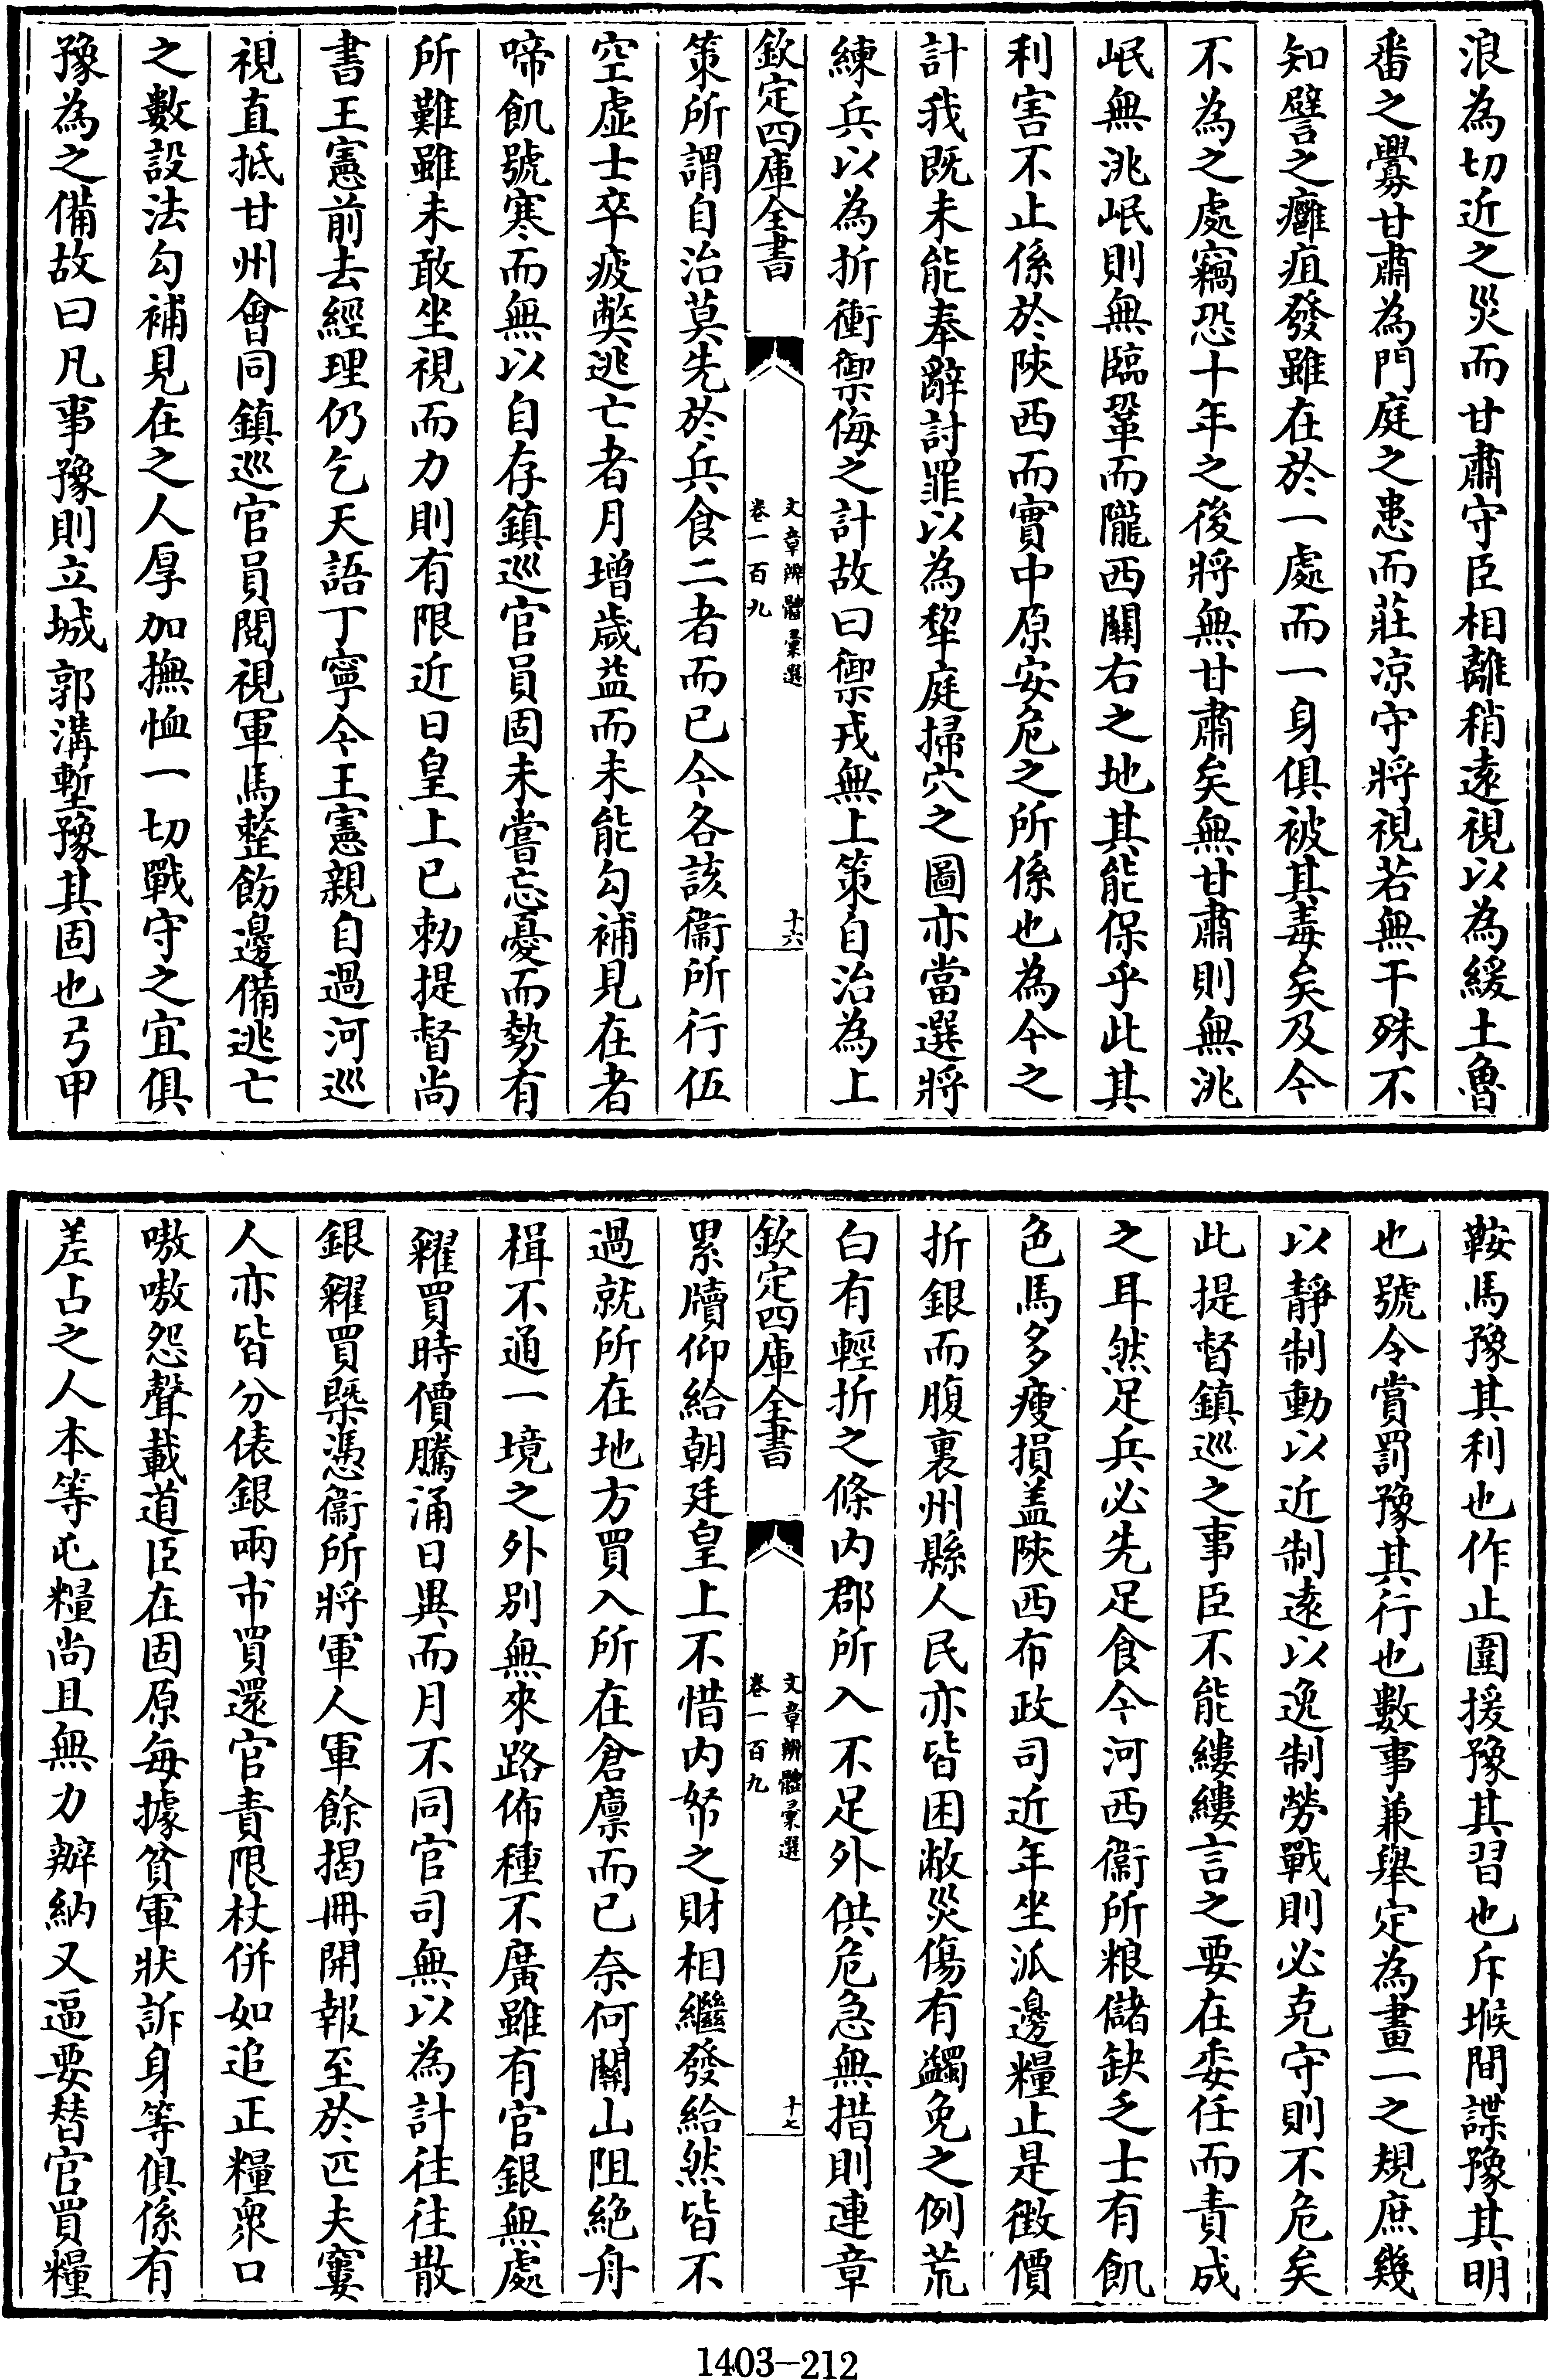 浪為切近之災而甘肅守臣相離稍逺視以為緩土魯
番之釁甘肅為門庭之患而莊凉守將視若無干殊不
知譬之癰疽發雖在於一處而一身俱被其毒矣及今
不為之處竊恐十年之後將無甘肅矣無甘肅則無洮
岷無洮岷則無臨鞏而隴西關右之地其能保乎此其
利害不止係於陜西而實中原安危之所係也為今之
計我既未能奉辭討罪以為犂庭掃穴之圖亦當選將
練兵以為折衝禦侮之計故曰禦戎無上策自治為上
欽定四庫全書
文章辨體彚選
卷一百九
十六
策所謂自治莫先於兵食二者而已今各該衞所行伍
空虚士卒疲弊逃亡者月增歲益而未能勾補見在者
啼飢號寒而無以自存鎮巡官員固未嘗忘憂而勢有
所難雖未敢坐視而力則有限近日皇上已勅提督尚
書王憲前去經理仍乞天語丁寧令王憲親自過河巡
視直抵甘州會同鎮巡官員閱視軍馬整飭邊備逃亡
之數設法勾補見在之人厚加撫恤一切戰守之宜俱
豫為之備故曰凡事豫則立城郭溝塹豫其固也弓甲
鞍馬豫其利也作止圍援豫其習也斥堠間諜豫其明
也號令賞罰豫其行也數事兼舉定為畫一之規庶幾
以靜制動以近制逺以逸制勞戰則必克守則不危矣
此提督鎮巡之事臣不能縷縷言之要在委任而責成
之耳然足兵必先足食今河西衞所粮儲缺乏士有飢
色馬多瘦損盖陜西布政司近年坐派邊糧止是徵價
折銀而腹裏州縣人民亦皆困敝災傷有蠲免之例荒
白有輕折之條内郡所入不足外供危急無措則連章
欽定四庫全書
文章辨體彚選
卷一百九
十七
累牘仰給朝廷皇上不惜内帑之財相繼發給然皆不
過就所在地方買入所在倉廪而已奈何關山阻絶舟
楫不通一境之外别無來路佈種不廣雖有官銀無處
糴買時價騰涌日異而月不同官司無以為計往往散
銀糴買槩憑衞所將軍人軍餘揭冊開報至於匹夫寠
人亦皆分俵銀兩市買還官責限杖併如追正糧衆口
嗷嗷怨聲載道臣在固原每據貧軍狀訴身等俱係有
差占之人本等屯糧尚且無力辦納又逼要替官買糧
1403-212